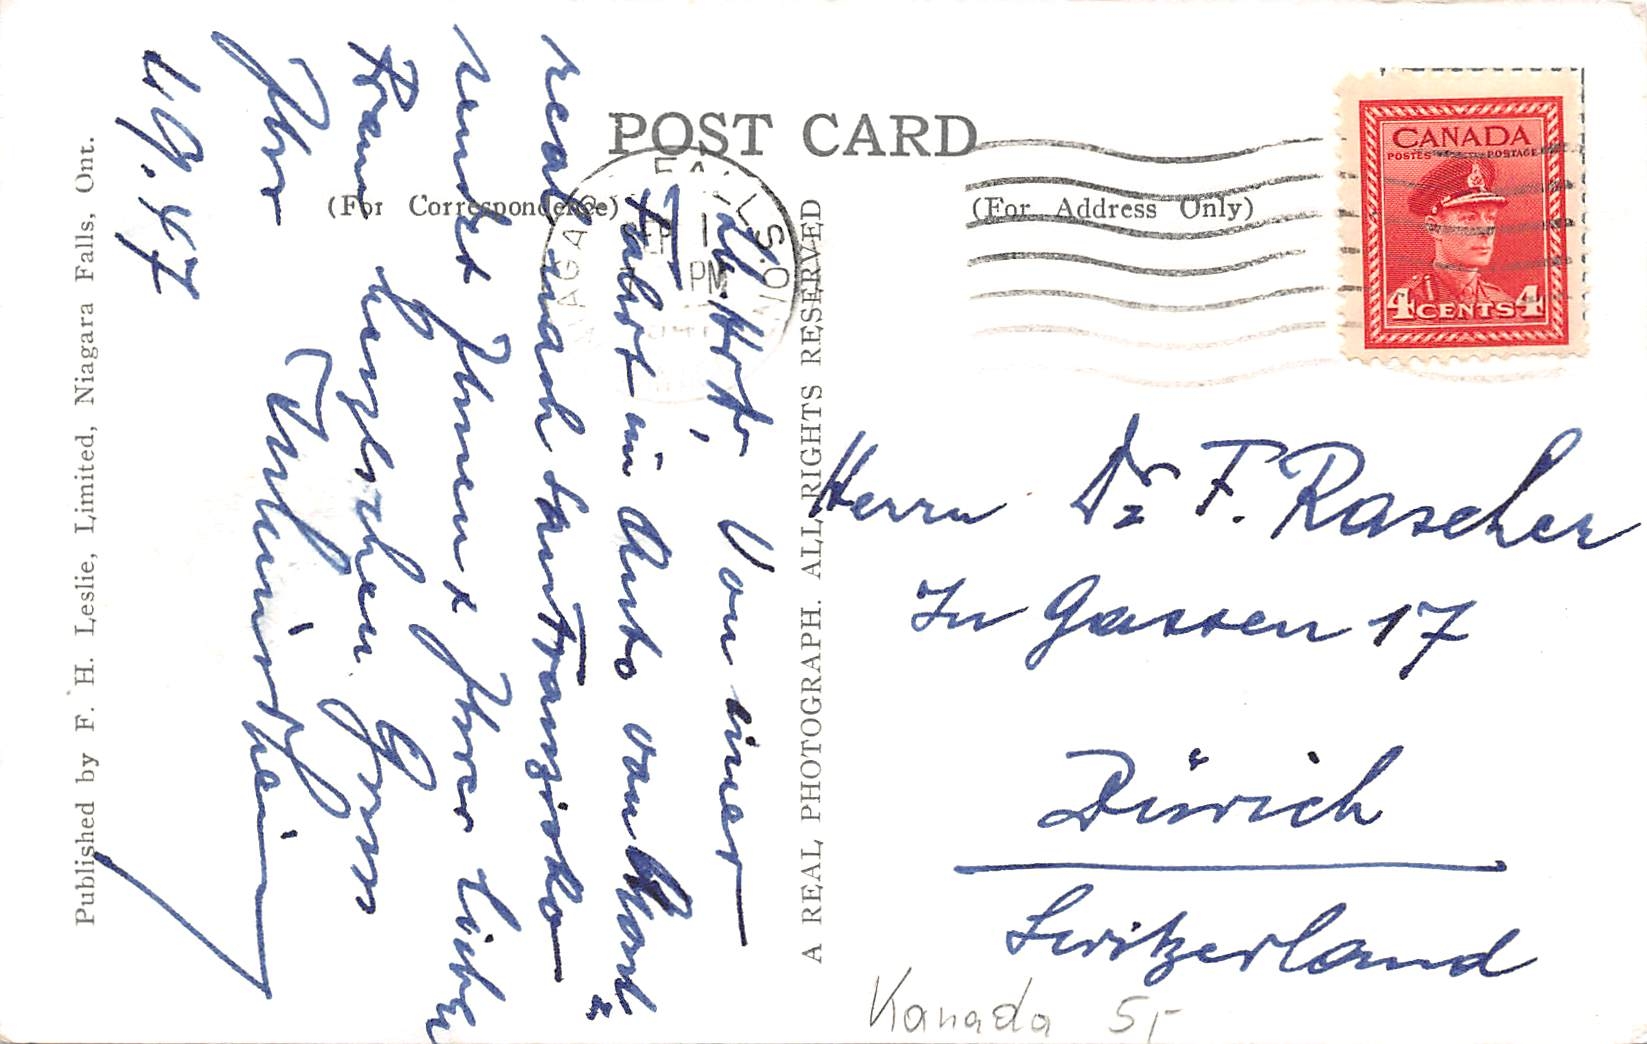 POST CARD
(For Correspondence)
(For Address Only)
CANADA
POSTES POSTAGE
4 CENTS 4
NIAGARA FALLS ONT
PM
Von einer
Fahrt im Auto von Mont=
real nach San Franzisko
sendet Ihnen & Ihrer lieben
Frau herzlichen Gruss
Ihr
4 9. 47
Herrn Dr F. Rascher
In Gassen 17
Zürich
Switzerland
Kanada 5,-
A REAL PHOTOGRAPH. ALL RIGHTS RESERVED
Published by F. H. Leslie, Limited, Niagara Falls, Ont.